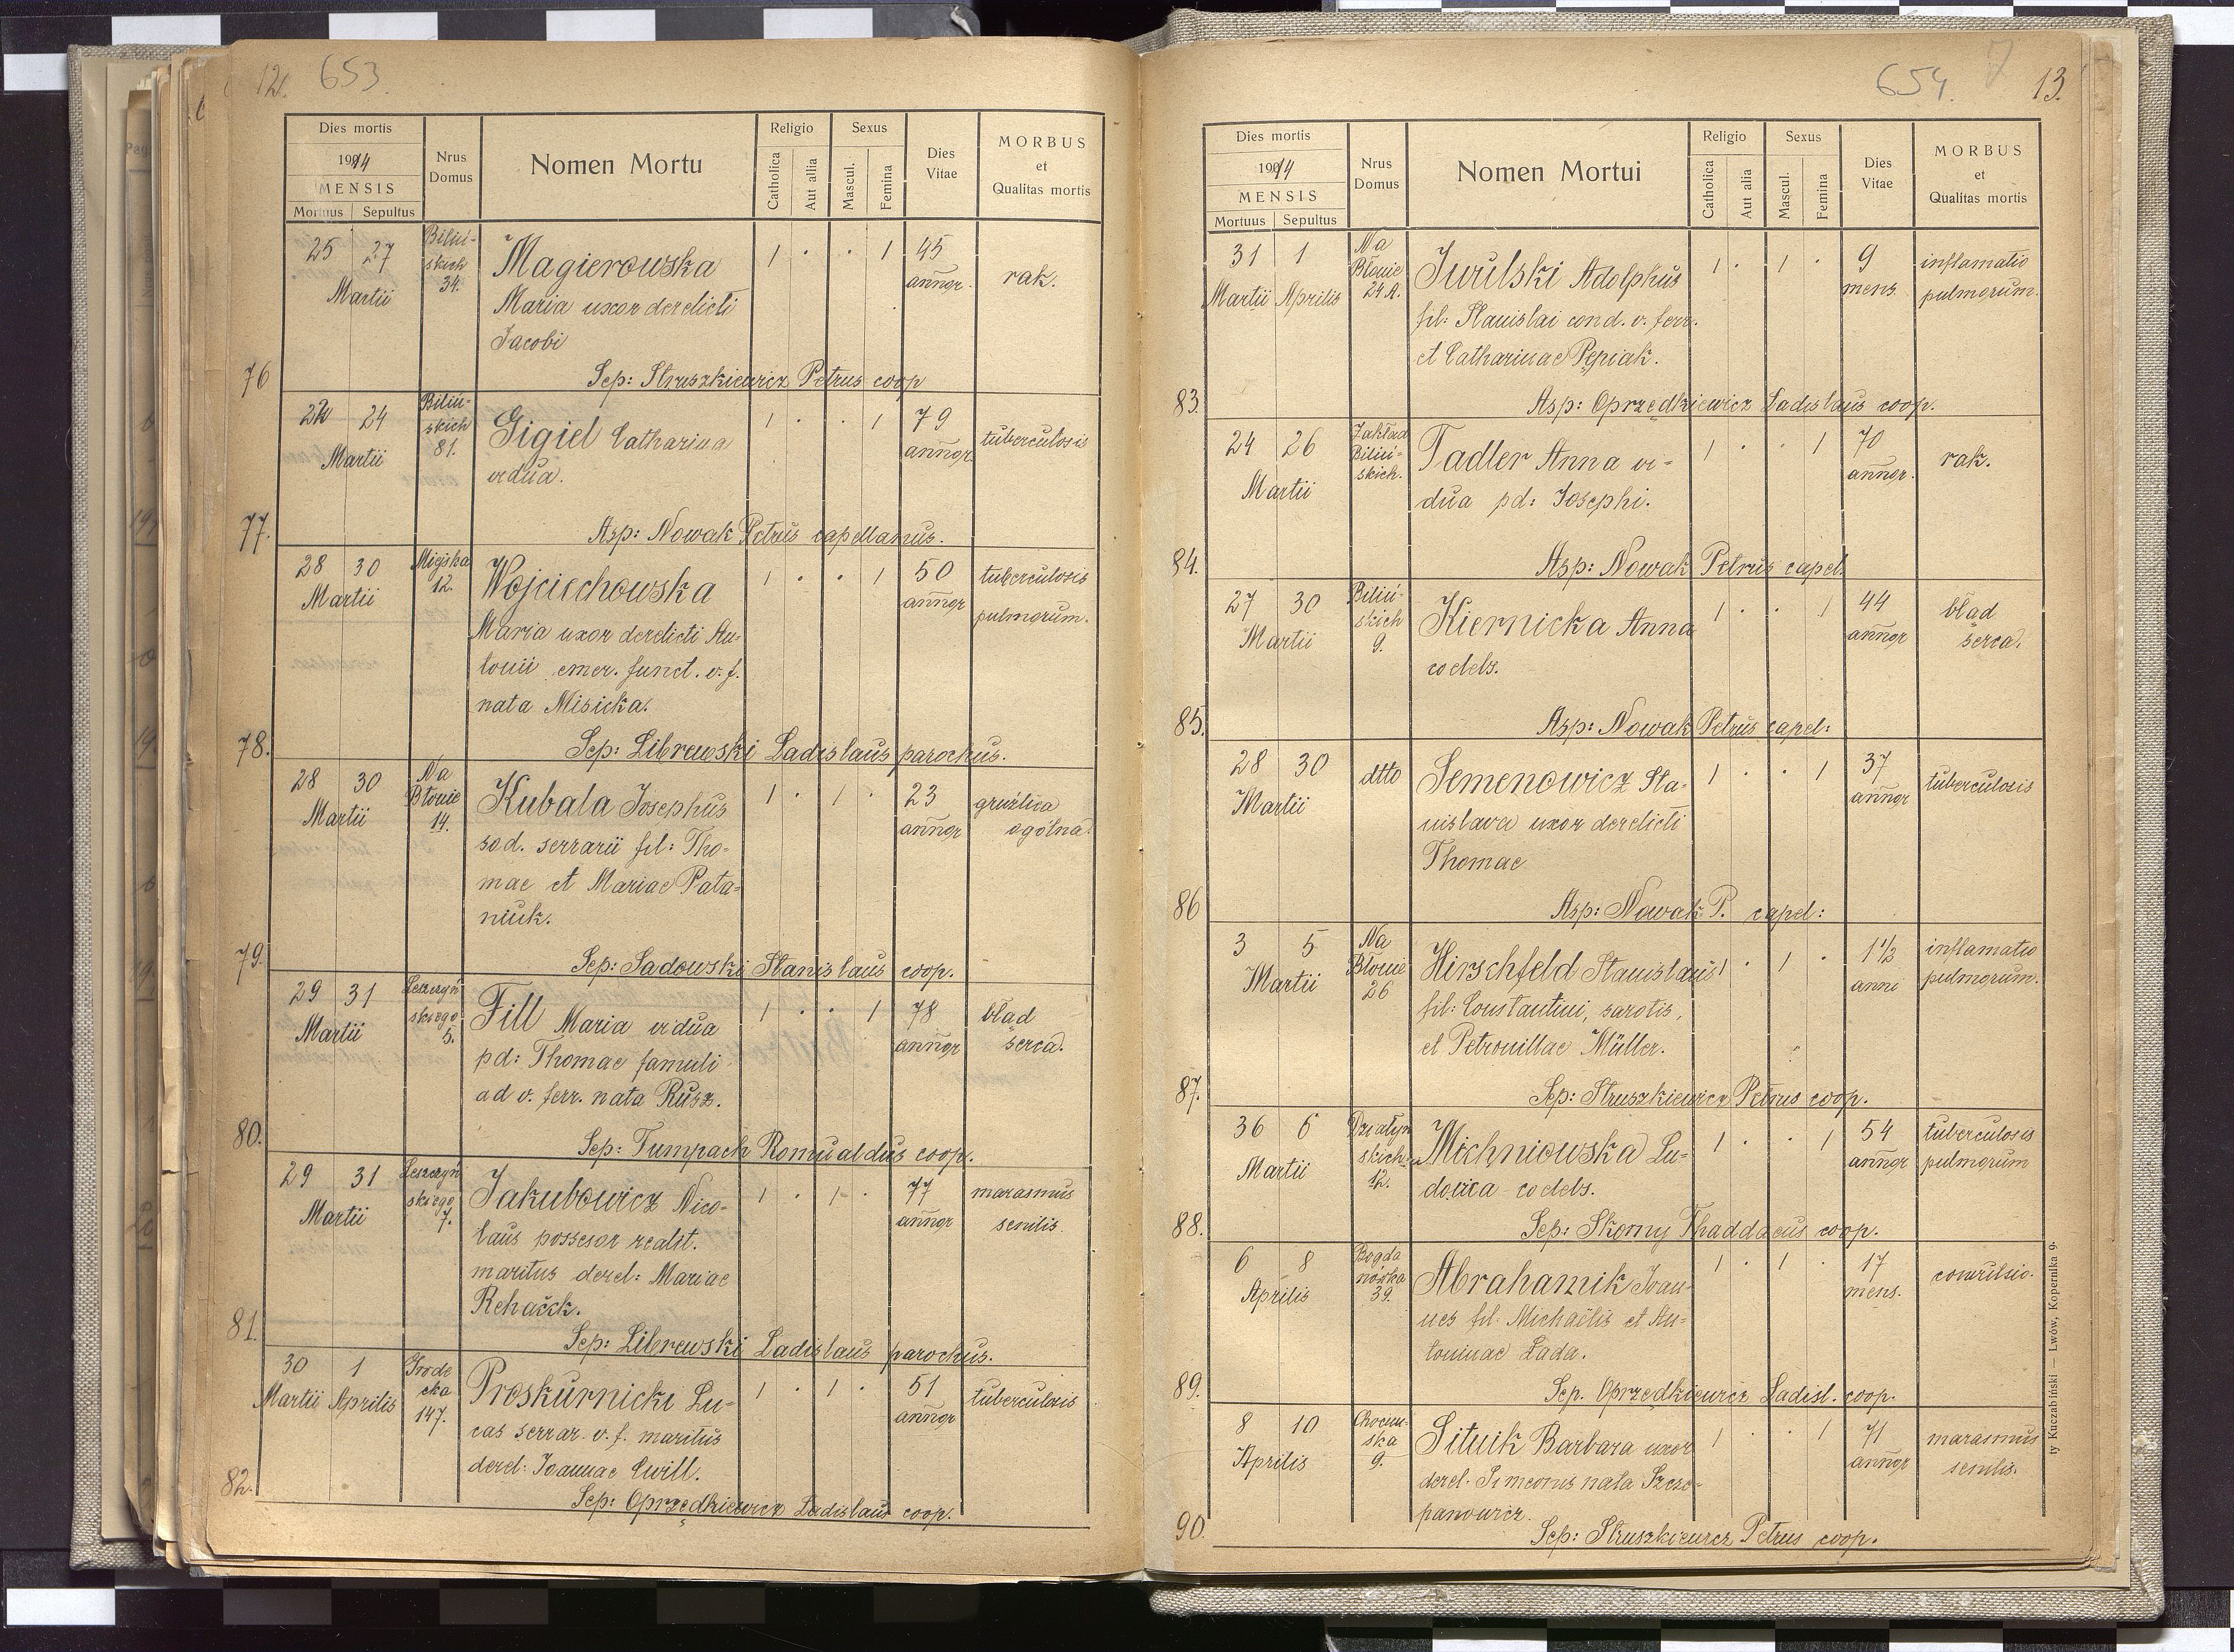 12. 653.
Dies mortis
1914
MENSIS
Mortuus Sepultus
Nrus Domus
Nomen Mortu
Religio
Catholica
Aut allia
Sexus
Mascul.
Femina
Dies Vitae
MORBUS
et
Qualitas mortis
76
25 27 Martii
Biliń-
skich
34.
Magierowska
Maria uxor derelicti
Jacobi
1 . . 1
45
annor.
rak.
Sep: Struszkiewicz Petrus coop
77.
24 Martii
Biliń-
skich
81.
Gigiel Catharina
vidua.
1 . . 1
79
annor
tuberculosis
Asp: Nowak Petrus capellanus.
78.
28 30 Martii
Miejska
12.
Wojciechowska
Maria uxor derelicti An-
tonii emer. funct. v. f.
nata Misicka.
1 . . 1
50
annor
tuberculosis
pulmorum.
Sep: Librewski Ladislaus parochus.
79.
28 30 Martii
Na
Błonie
14.
Kubala Josephus
sod. serrarii fil: Tho-
mae et Mariae Pata-
niuk.
1 . 1 .
23
annor
gruźlica
ogólna.
Sep: Sadowski Stanislaus coop.
80.
29 31 Martii
Leszczyń
skiego
5.
Fill Maria vidua
pd: Thomae famuli
ad v. ferr. nata Rusz.
1 . . 1
78
annor
bład
serca.
Sep: Tumpach Romualdus coop.
81.
29 31 Martii
Leszczyń
skiego
7.
Jakubowicz Nico-
laus possesor realit.
maritus derel: Mariae
Rehaček.
1 . 1 .
77
annor
marasmus
senilis.
Sep: Librewski Ladislaus parochus.
82.
30 Martii 1 Aprilis
Grode
cka
147.
Proskurnicki Lu-
cas serrar. v. f. maritus
derel: Joannae Cwill.
1 . 1 .
51
annor
tuberculosis
Sep: Oprzędkiewicz Ladislaus coop.
654. 13.
Dies mortis
1914
MENSIS
Mortuus Sepultus
Nrus Domus
Nomen Mortui
Religio
Catholica
Aut alia
Sexus
Mascul.
Femina
Dies Vitae
MORBUS
et
Qualitas mortis
83.
31 Martii 1 Aprilis
Na
Błonie
24 A.
Iwulski Adolphus
fil: Stanislai cond. v. ferr.
et Catharinae Pępiak.
1 . 1 .
9
mens.
inflamatio
pulmorum.
Asp: Oprzędkiewicz Ladislaus coop.
84.
24 26 Martii
Zakład
Biliń-
skich.
Tadler Anna vi-
dua pd: Josephi.
1 . . 1
70
annor.
rak.
Asp: Nowak Petrus capel.
85.
27 30 Martii
Biliń-
skich
9.
Kiernicka Anna
coelebs.
1 . . 1
44
annor
bład
serca.
Asp: Nowak Petrus capel:
86
28 30 Martii
dtto
Semenowicz Sta-
nislava uxor derelicti
Thomae
1 . . 1
37
annor
tuberculosis
Asp: Nowak P. capel:
87.
3 5 Martii
Na
Błonie
26
Hirschfeld Stanislaus
fil: Constantini, sarotis,
et Petronillae Müller.
1 . 1 .
1 1/2
anni
inflamatio
pulmorum.
Sep: Struszkiewicz Petrus coop.
88.
36 6 Martii
Działyń
skich
12.
Michniowska Lu-
dovica coelebs.
1 . . 1
54
annor
tuberculosis
pulmorum
Sep: Skorny Thaddaeus coop.
89.
6 8 Aprilis
Bogda
nówka
39.
Abrahamik Joan-
nes fil. Michaëlis et An-
toninae Lada.
1 . 1 .
17
mens.
convulsio.
Sep. Oprzędkiewicz Ladisl. coop.
90.
8 10 Aprilis
Chocim-
ska
9.
Situik Barbara uxor
derel. Simeonis nata Szcze-
panowicz.
1 . . 1
71
annor
marasmus
senilis.
Sep: Struszkiewicz Petrus coop.
ty Kuczabiński — Lwów, Kopernika 9.